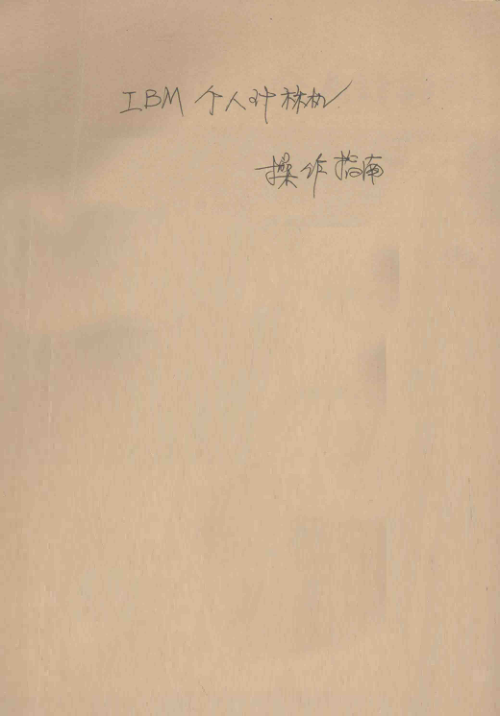 IBM 个人计算机
操作指南